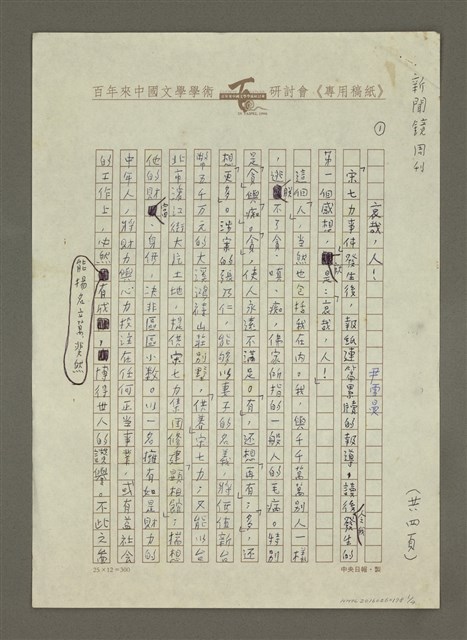 新聞鏡周刊
(共四頁)
百年來中國文學學術研討會《專用稿紙》
①
哀哉,人!
尹雪曼
宋七力事件發生後,報紙連篇累牘的報導。讀後,令人發生的
第一個感想,就是:哀哉,人!
這個「人」,當然也包括我在內。我,與千千萬萬別人一樣
,逃脫不了貪、嗔、痴,佛家所指的一般人的毛病。特別
是「貪」與「痴」。「貪」,使人永遠不滿足。「有」,還想再有;「多」,還
想更多。涉案的張乃仁,能夠以妻子的名義,將價值新台
幣五千萬元的大溪鴻禧山莊別墅,供養宋七力;又能以台
北市濱江街大片土地,提供宋七力集團修建「顯相館」;揣想
他的財富、身價,決非區區小數。以一名擁有如是財力的
中年人,將財力與心力投注在任何正當事業,或有益社會
的工作上,必然有成,博得世人的讚譽。不此之圖
能揚名立萬,斐然
25×12=300
中央日報·製